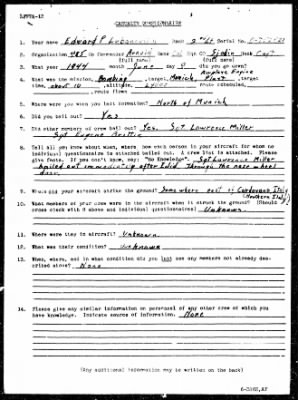 CASUALTY QUESTIONNAIRE
1. Your name Edward P. Rank 2nd Lt. Serial No.
2. Organization 485 Gp Commander Rank Col Sqn CO Rank Capt
(full name) (full name)
3. What year 1944 month June day 9 did you go down?
4. What was the mission, Bombing, target, Munich, Plant, target
time, about 10, altitude, route scheduled,
, route flown
5. Where were you when you left formation? North of Munich
6. Did you bail out? Yes
7. Did other members of crew bail out? Yes, Sgt Lawrence Miller
Sgt Eugene
8. Tell all you know about when, where, how each person in your aircraft for whom no
individual questionnaire is attached bailed out. A crew list is attached. Please
give facts. If you don't know, say: "No Knowledge". Sgt Lawrence Miller
bailed out immediately after I did through the nose wheel
door.
9. Where did your aircraft strike the ground? Somewhere east of Italy
(Northern Italy)
10. What members of your crew were in the aircraft when it struck the ground? (Should
cross check with 8 above and individual questionnaires) Unknown
11. Where were they in aircraft? Unknown
12. What was their condition? Unknown
13. When, where, and in what condition did you last see any members not already described
above? None
14. Please give any similar information on personnel of any other crew of which you
have knowledge. Indicate source of information. None
(Any additional information may be written on the back)